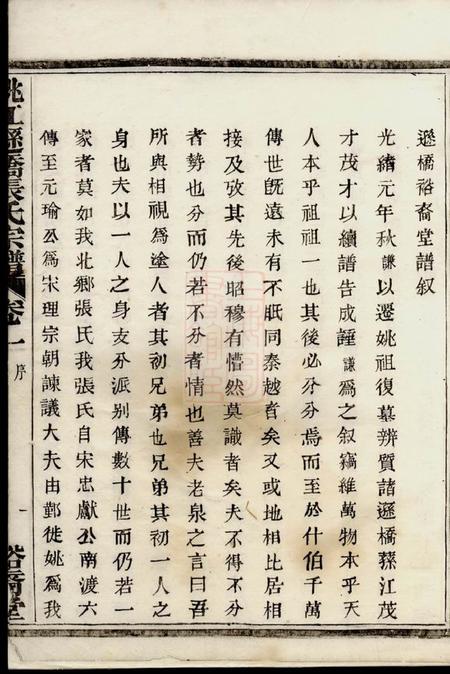 遜橋裕裔堂譜叙
光緒元年秋謙以遷姚祖復墓辨質諸遜橋蓀江茂
才茂才以續譜告成諈謙爲之叙竊維萬物本乎天
人本乎祖祖一也其後必分分焉而至於什伯千萬
傳世旣遠未有不眂同秦越者矣又或地相比居相
接及攷其先後昭穆有懵然莫識者矣夫不得不分
者勢也分而仍若不分者情也善夫老泉之言曰吾
所與相視爲塗人者其初兄弟也兄弟其初一人之
身也夫以一人之身支分派别傳數十世而仍若一
家者莫如我北鄉張氏我張氏自宋忠獻公南渡六
傳至元瑜公爲宋理宗朝諫議大夫由鄞徙姚爲我
姚江遜橋張氏宗譜 卷一 序 一 裕裔堂